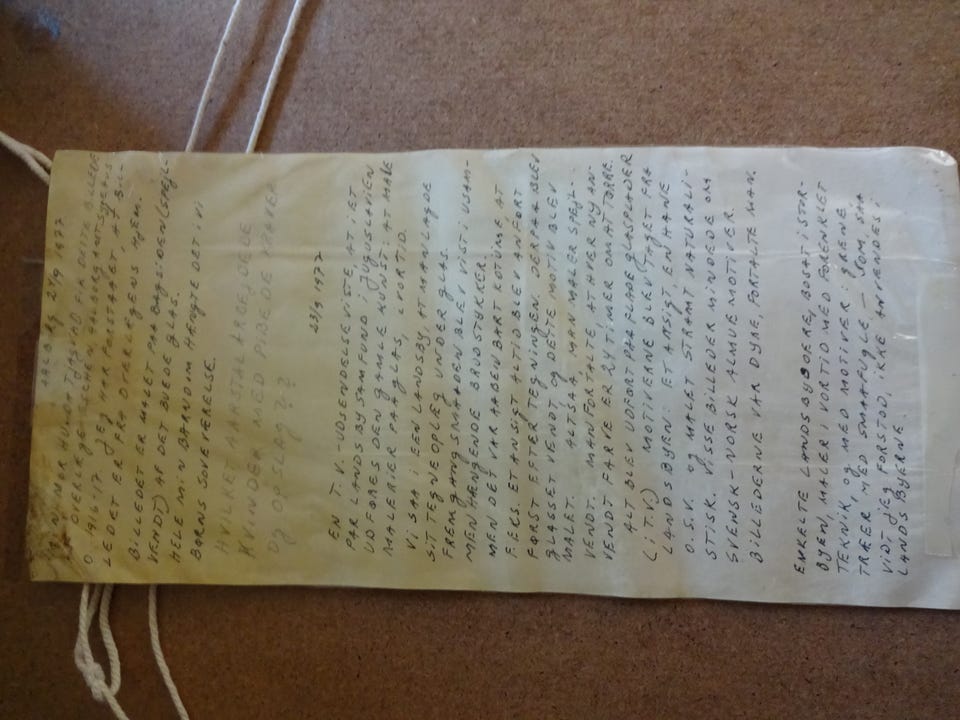 AALBORG 24/9 1977
OVERLÆRER
O. 1916-17. JEG HAR FORSTAAET, AT BIL-
LEDET ER FRA DERES EGENS HJEM.
BILLEDET ER MALET PAA BAGSIDEN (SPEJL
VENDT) AF DET BUEDE GLAS.
HELE MIN BARNDOM HÆNGTE DET I VI
BØRNS SOVEVÆRELSE.
HVILKET AARSTAL ARBEJDEDE
KVINDER MED PIBEDE KRAVER
OG OPSLAG??
25/9 1977
EN T.V.-UDSENDELSE VISTE AT I ET
PAR LANDSBYSAMFUND i JUGUSLAVIEN
UDFØRES DEN GAMLE KUNST: AT MALE
MALERIER PAA GLAS, i VOR TID.
Vi SAA i EEN LANDSBY, AT MAN LAGDE
SIT TEGNEOPLÆG UNDER GLAS.
FREMGANGSMAADEN BLEV VIST i USAM-
MENHÆNGENDE BRUDSTYKKER.
MEN DET VAR AABENBART KOTUME AT
F.EKS. ET ANSIGT ALTID BLEV ANFØRT
FØRST EFTER TEGNINGEN. DERPAA BLEV
GLASSET VENDT, OG DELTE MOTIV BLEV
MALET. ALTSAA, MAN MALER SPEJL-
VENDT. MAN FORTALTE, AT HAVER NY AN-
VENDT FARVE 2 RYTIMER OM AT TØRRE.
ALT BLEV UDFØRT PAA FLADE GLASPLADER
(i T.V.) MOTIVERNE BLEV TAGET FRA
LANDSBYEN: ET ANSIGT, EN HANE
O.S.V. OG MALET STRAMT NATURALI-
STISK. VISSE BILLEDER MINDEDE OM
SVENSK-NORSK ALMUE MOTIVER.
BILLEDERNE VAR DYRE, FORTALTE MAN.
ENKELTE LANDSBYBOERE, BOSAT I STOR-
BYEN, MALER i VOR TID MED FORENKLET
TEKNIK, OG MED MOTIVER: GRENE.
TRÆER MED SMAAFUGLE, - SOM, SAA
VIDT JEG FORSTOD, IKKE ANVENDES i
LANDSBYERNE.